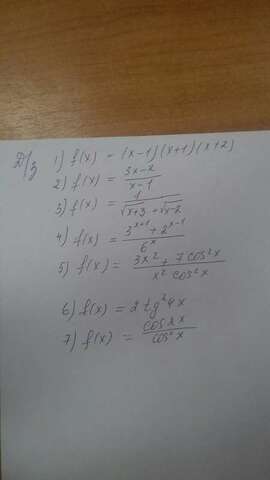 Д/з 1) f(x) = (x-1)(x+1)(x+2)
2) f(x) = \frac{3x-2}{x-1}
3) f(x) = \frac{1}{\sqrt{x+3} + \sqrt{x-2}}
4) f(x) = \frac{3^{x+1} + 2^{x-1}}{6^x}
5) f(x) = \frac{3x^2 + 7cos^2x}{x^2 cos^2x}
6) f(x) = 2 tg^2 4x
7) f(x) = \frac{cos2x}{cos^2x}